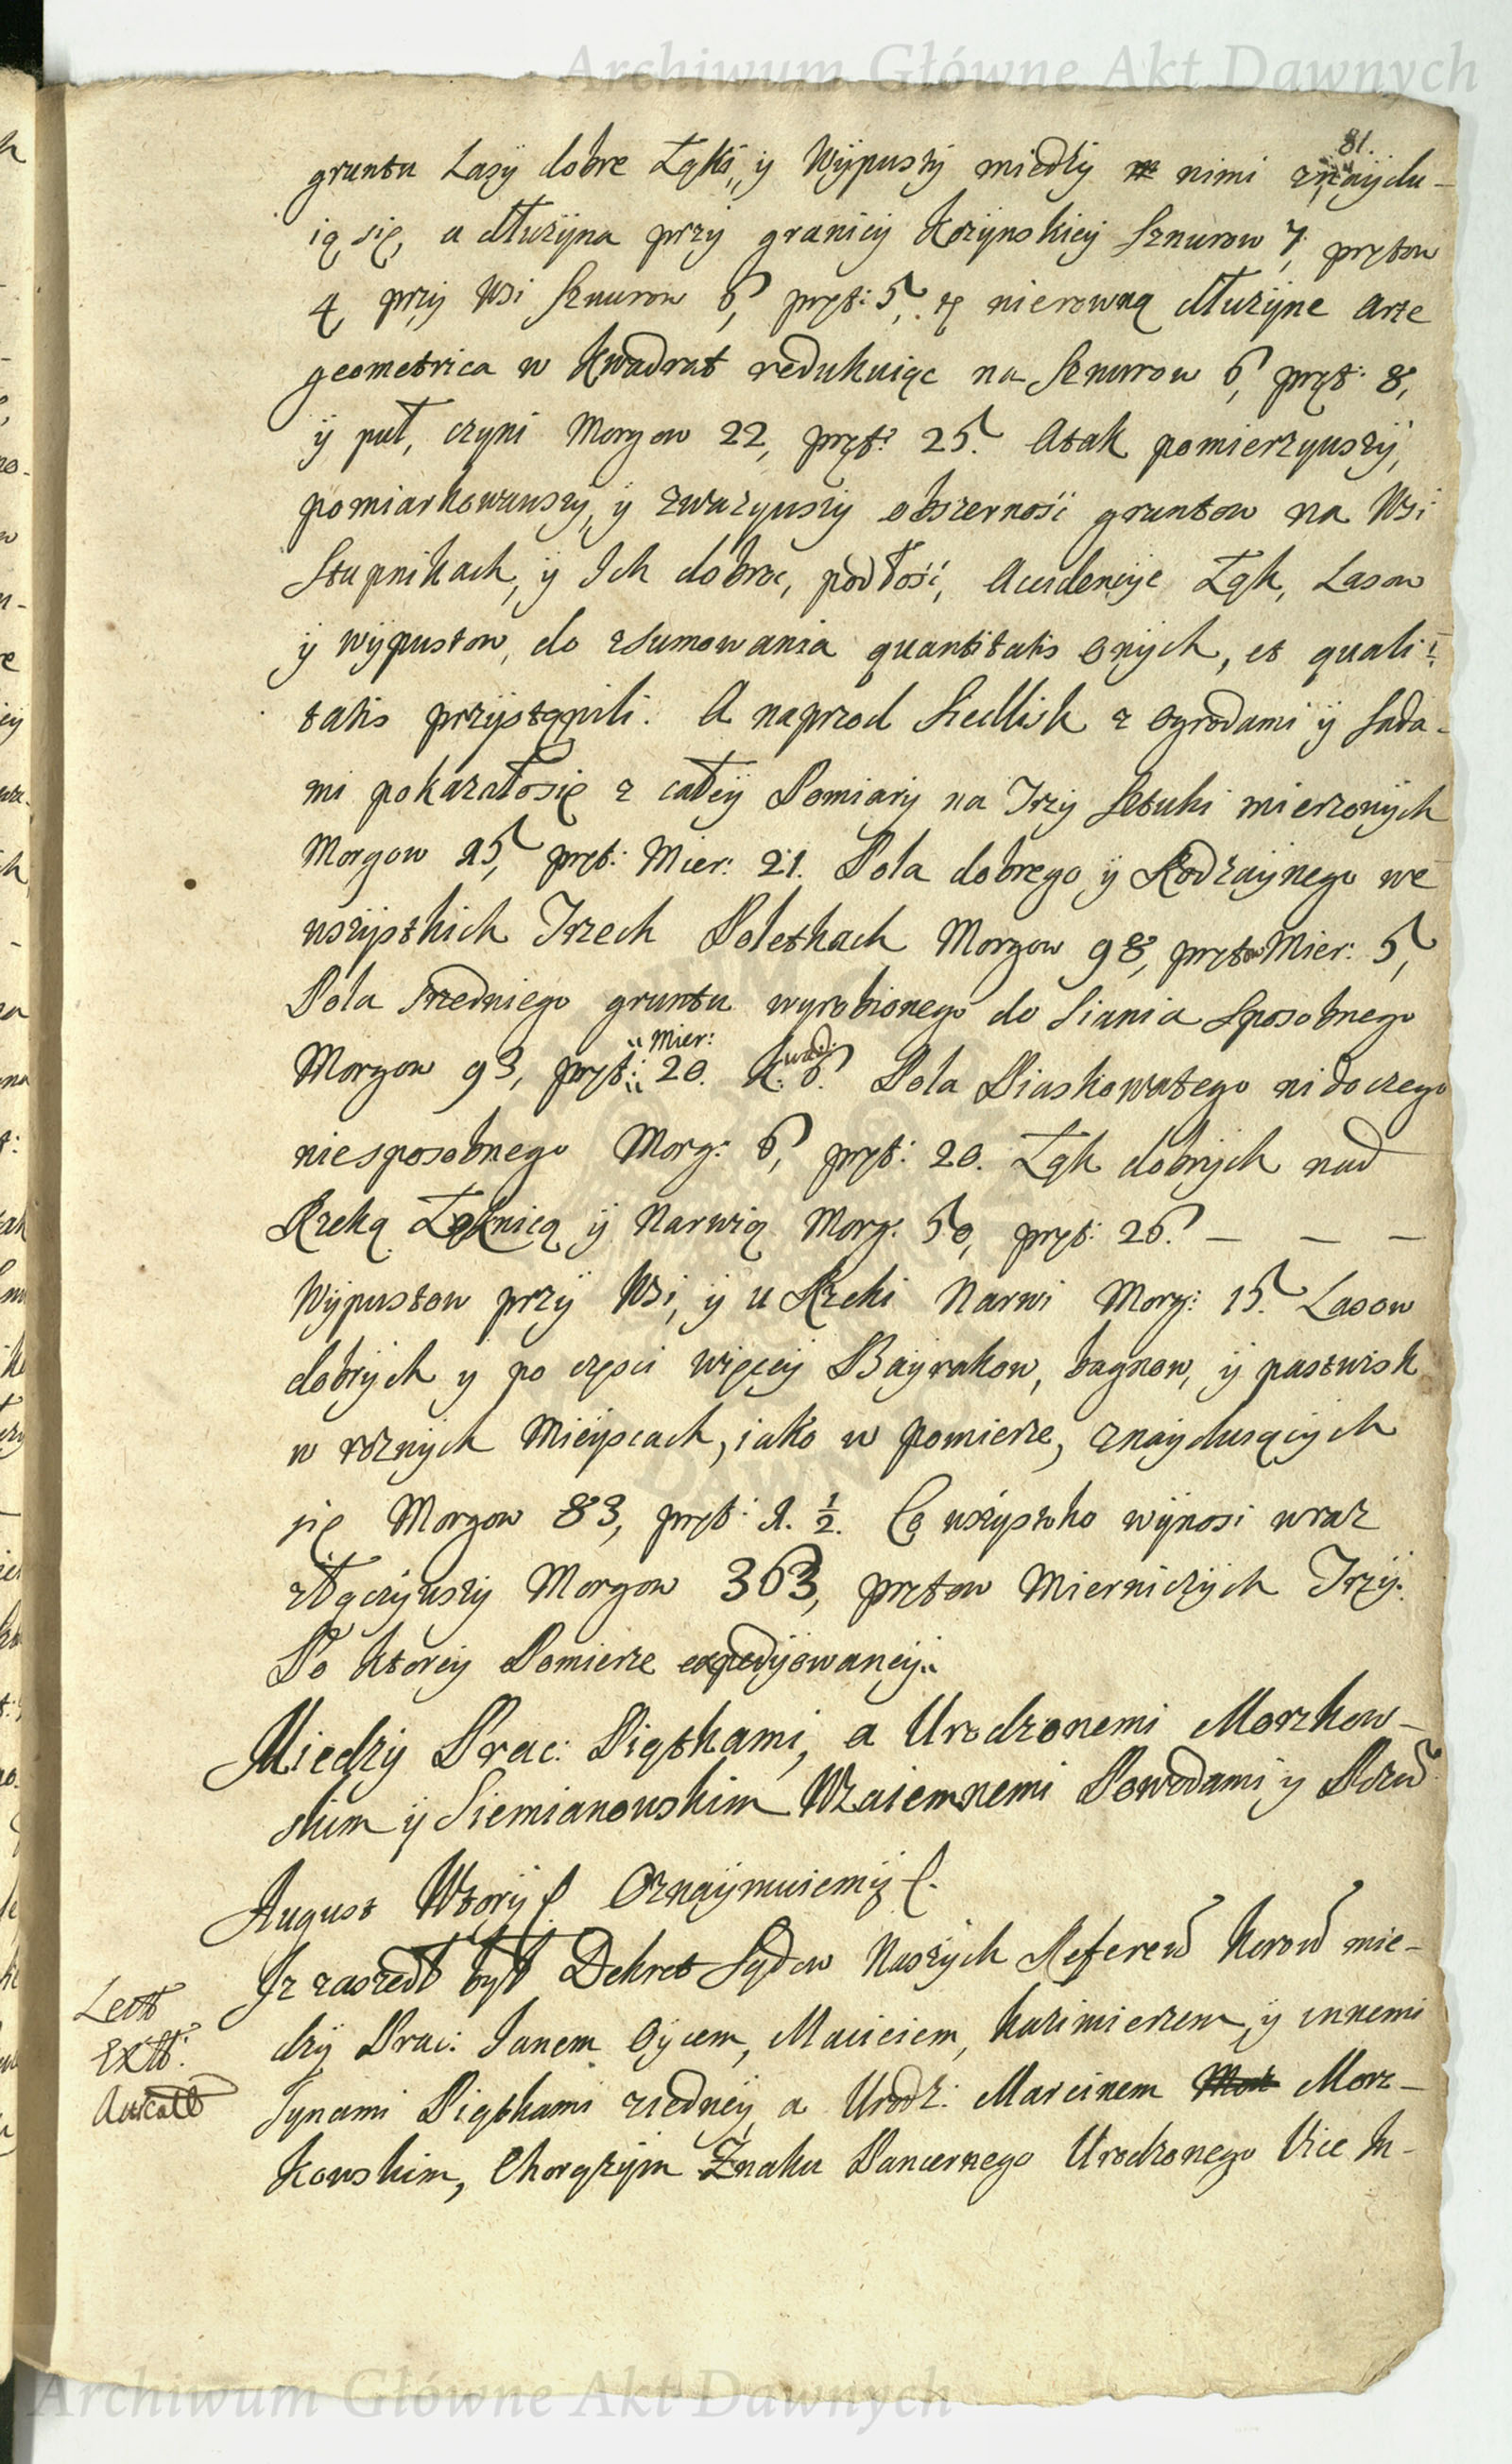 Archiwum Główne Akt Dawnych
81.
gruntu Lasÿ dobre Łąki, ÿ Wÿpusżÿ międżÿ nimi znaÿdu-
ią się, a dłużÿna przÿ granicÿ Korÿnskieÿ Sznurow 7, prętow
4, przÿ Wsi Sznurow 6, pręt: 5, tę nierowną dłużÿne arte
geometrica w kwadrat redukuiąc na Sznurow 6, pręt: 8,
ÿ puł, czyni Morgow 22, pręt: 25. Atak pomierzywszÿ,
pomiarkowawszÿ, ÿ zwazywszÿ obszerność gruntow na Wsi
Stupnikach, ÿ Ich dobroć, podłość, Accidencÿe Łąk, Lasow
ÿ wÿpustow, do zsumowania quantitatis onÿch, et quali-
tatis przÿstąpili. A naprzod Siedlisk z ogrodami ÿ Sada-
mi pokazałosię z całeÿ Pomiarÿ na Trzÿ Sztuki mierzonÿch
Morgow 15, pręt: Mier: 21. Pola dobrego ÿ Rodzaÿnego we
wszÿstkich Trzech Poletkach Morgow 98, prętow Mier: 5,
Pola Średniego gruntu wyrobionego do Siania Sposobnego
Morgow 93, pręt: Mier: 20. kwad: 6. Pola Piaskowatego nidoczego
niesposobnego Morg: 6, pręt: 20. Łąk dobrÿch nad
Rzeką Łęknicą ÿ Narwią Morg: 50, pręt: 26. — — —
Wÿpustow przÿ Wsi, ÿ u Rzeki Narwi Morg: 15. Lasow
dobrÿch y po częsci więceÿ Baÿrakow, bagnow, ÿ pastwisk
w rżnÿch Mieÿscach, iako w pomierze, znaÿduiącÿch
się Morgow 83, pręt: 1. ½. Co wszÿstko wÿnosi wraz
złączÿwszÿ Morgow 363, prętow Mierniczÿch Trzÿ.
Po ktoreÿ Pomierze expedÿowaneÿ.
Miedzÿ Prac: Piątkami, a Urodzonemi Morzkow-
skim ÿ Siemianowskim Wzaiemnemi Powodami y Pozw
August Wtorÿ Oznaÿmuiemÿ
Iz zaszedł był Dekret Sądow Naszÿch Referend koron mie-
dzÿ Prac: Janem Oÿcem, Macieiem, kazimierzem, ÿ innemi
Synami Piątkami zied­neÿ, a Urodz: Marcinem Morz-
kowskim, Chorązÿm Znaku Pancernego Urodzonego Vice In-
Lectt
Extt:
Archiwum Główne Akt Dawnych